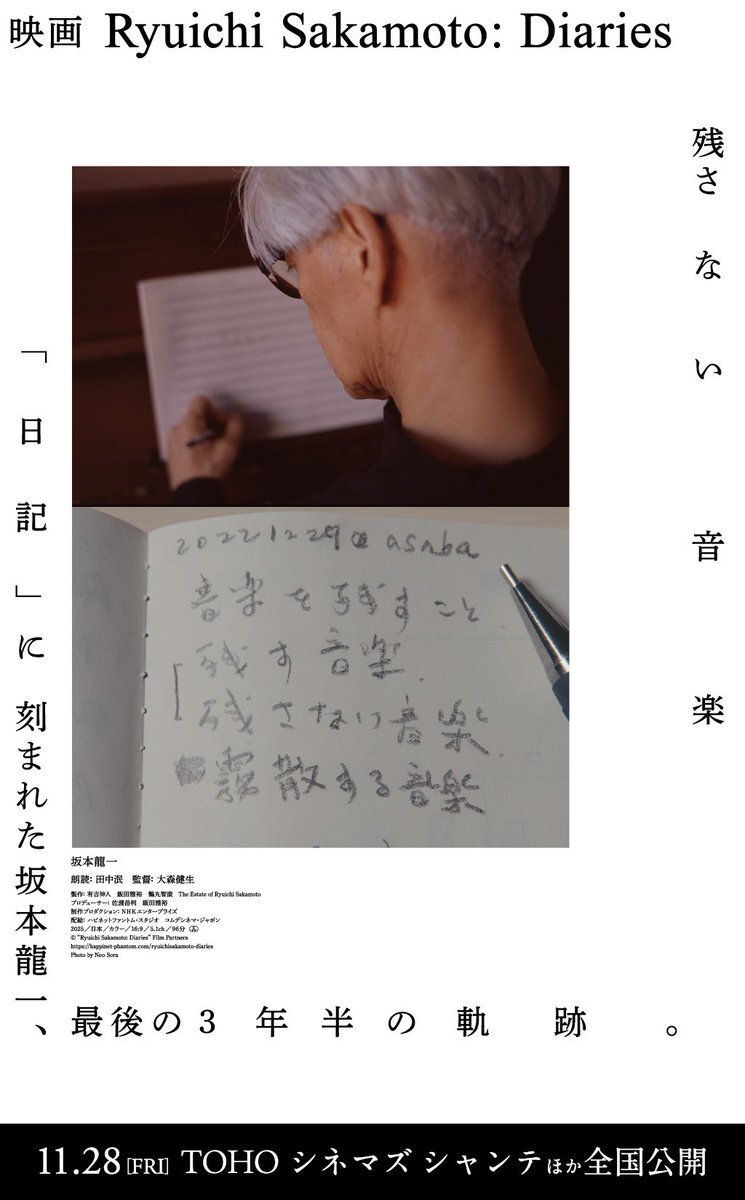 映画 Ryuichi Sakamoto: Diaries
残さない音楽
「日記」に刻まれた坂本龍一、
最後の3年半の軌跡。
20221229@ asaba
音楽を残すこと
残す音楽.
残さない音楽.
霧散する音楽
坂本龍一
朗読: 田中泯 監督: 大森健生
製作: 有吉伸人 飯田雅裕 鶴丸智康 The Estate of Ryuichi Sakamoto
プロデューサー: 佐渡岳利 飯田雅裕
制作プロダクション: NHKエンタープライズ
配給: ハピネットファントム・スタジオ コムデシネマ・ジャポン
2025/日本/カラー/16:9/5.1ch/96分 G
© "Ryuichi Sakamoto: Diaries" Film Partners
https://happinet-phantom.com/ryuichisakamoto-diaries
Photo by Neo Sora
11.28 [FRI] TOHO シネマズ シャンテほか全国公開